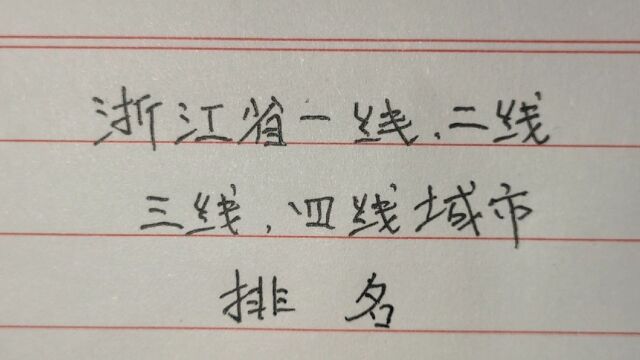 浙江省一线、二线
三线、四线城市
排名